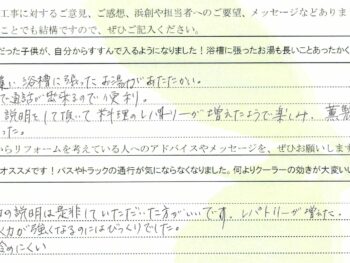 工事に対するご意見、ご感想、浜創や担当者へのご要望、メッセージなどありま
ことでも結構ですので、ぜひご記入ください。
だった子供が、自分からすすんで入るようになりました！浴槽に張ったお湯も長いことあったかく
浴槽に張ったお湯があたたかい。
で通話が出来るので便利。
説明をして頂いて料理のレパートリーが増えたようで楽しみ。
った。
からリフォームを考えている人へのアドバイスやメッセージを、ぜひお願いします
オススメです！バスやトラックの通行が気にならなくなりました。何よりクーラーの効きが大変いい
の説明は是非していただいた方がいいです。レパートリーが増えた。
力が強くなるのにはびっくりでした。
にくい